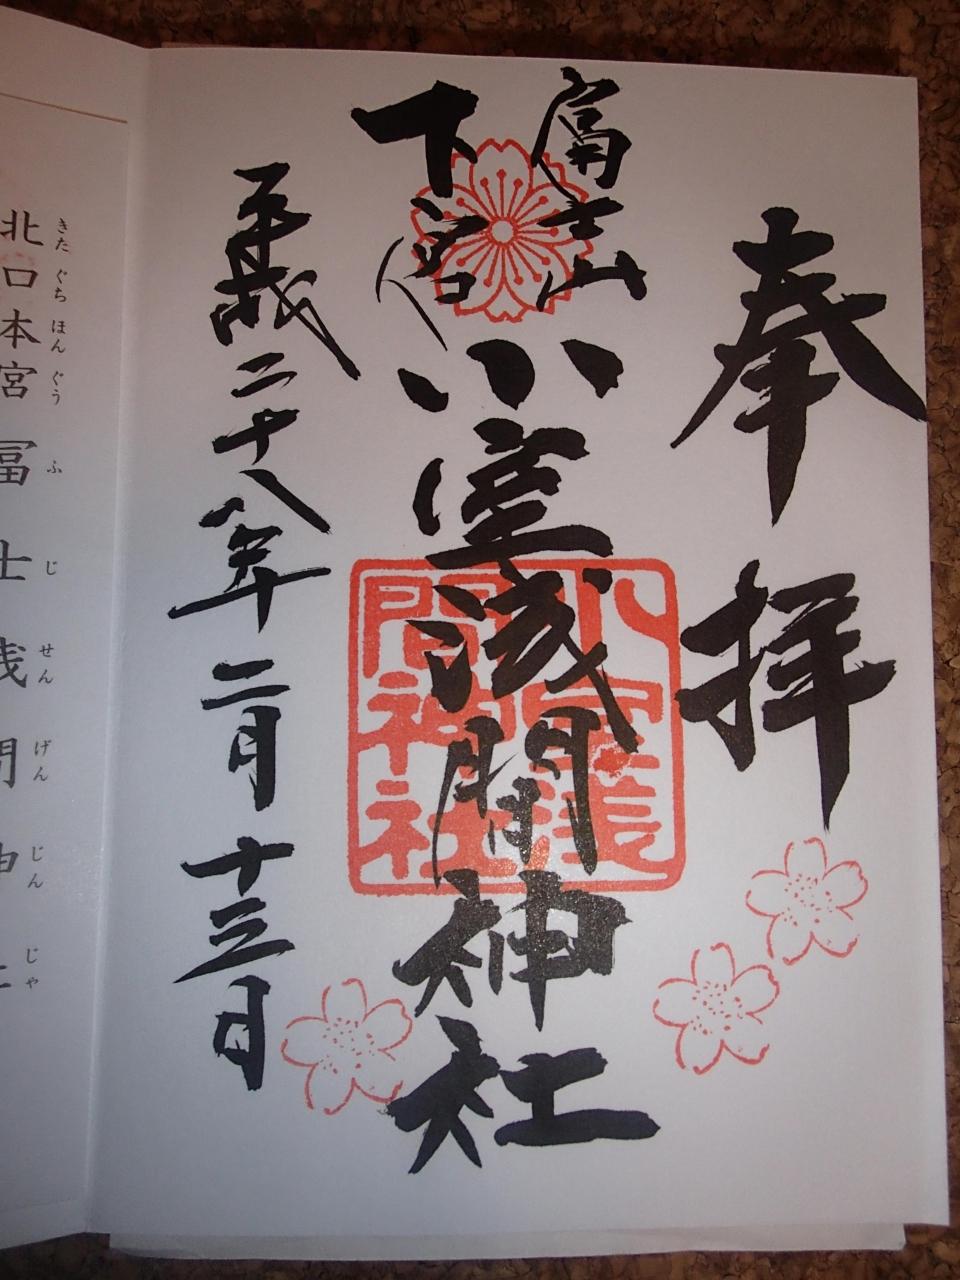 奉拝
富士山
下宮
小室浅間神社
平成二十八年二月十三日
小室浅
間神社
北口本宮冨士浅間神社
きたぐちほんぐうふじせんげんじんじゃ